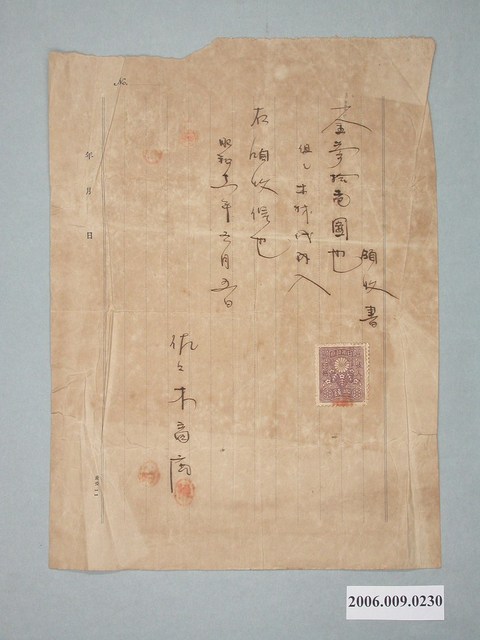 領收書
金 拾 圓也
但シ木材代內入
右領收候也
昭和 年 月五日
佐々木商店
No.
年 月 日
2006.009.0230